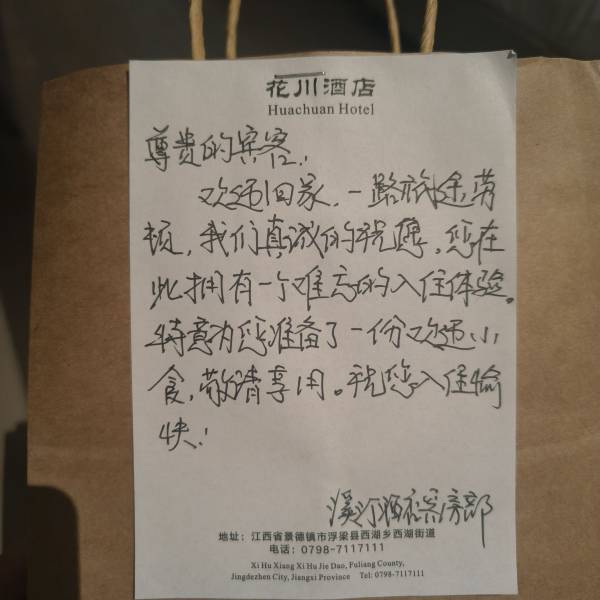 花川酒店
Huachuan Hotel
尊贵的宾客：
欢迎回家，一路旅途劳
顿，我们真诚的祝愿，您在
此拥有一个难忘的入住体验。
特意为您准备了一份欢迎小
食，敬请享用。祝您入住愉
快！
溪汀酒店客房部
地址：江西省景德镇市浮梁县西湖乡西湖街道
电话：0798-7117111
Xi Hu Xiang Xi Hu Jie Dao, Fuliang County,
Jingdezhen City, Jiangxi Province Tel: 0798-7117111